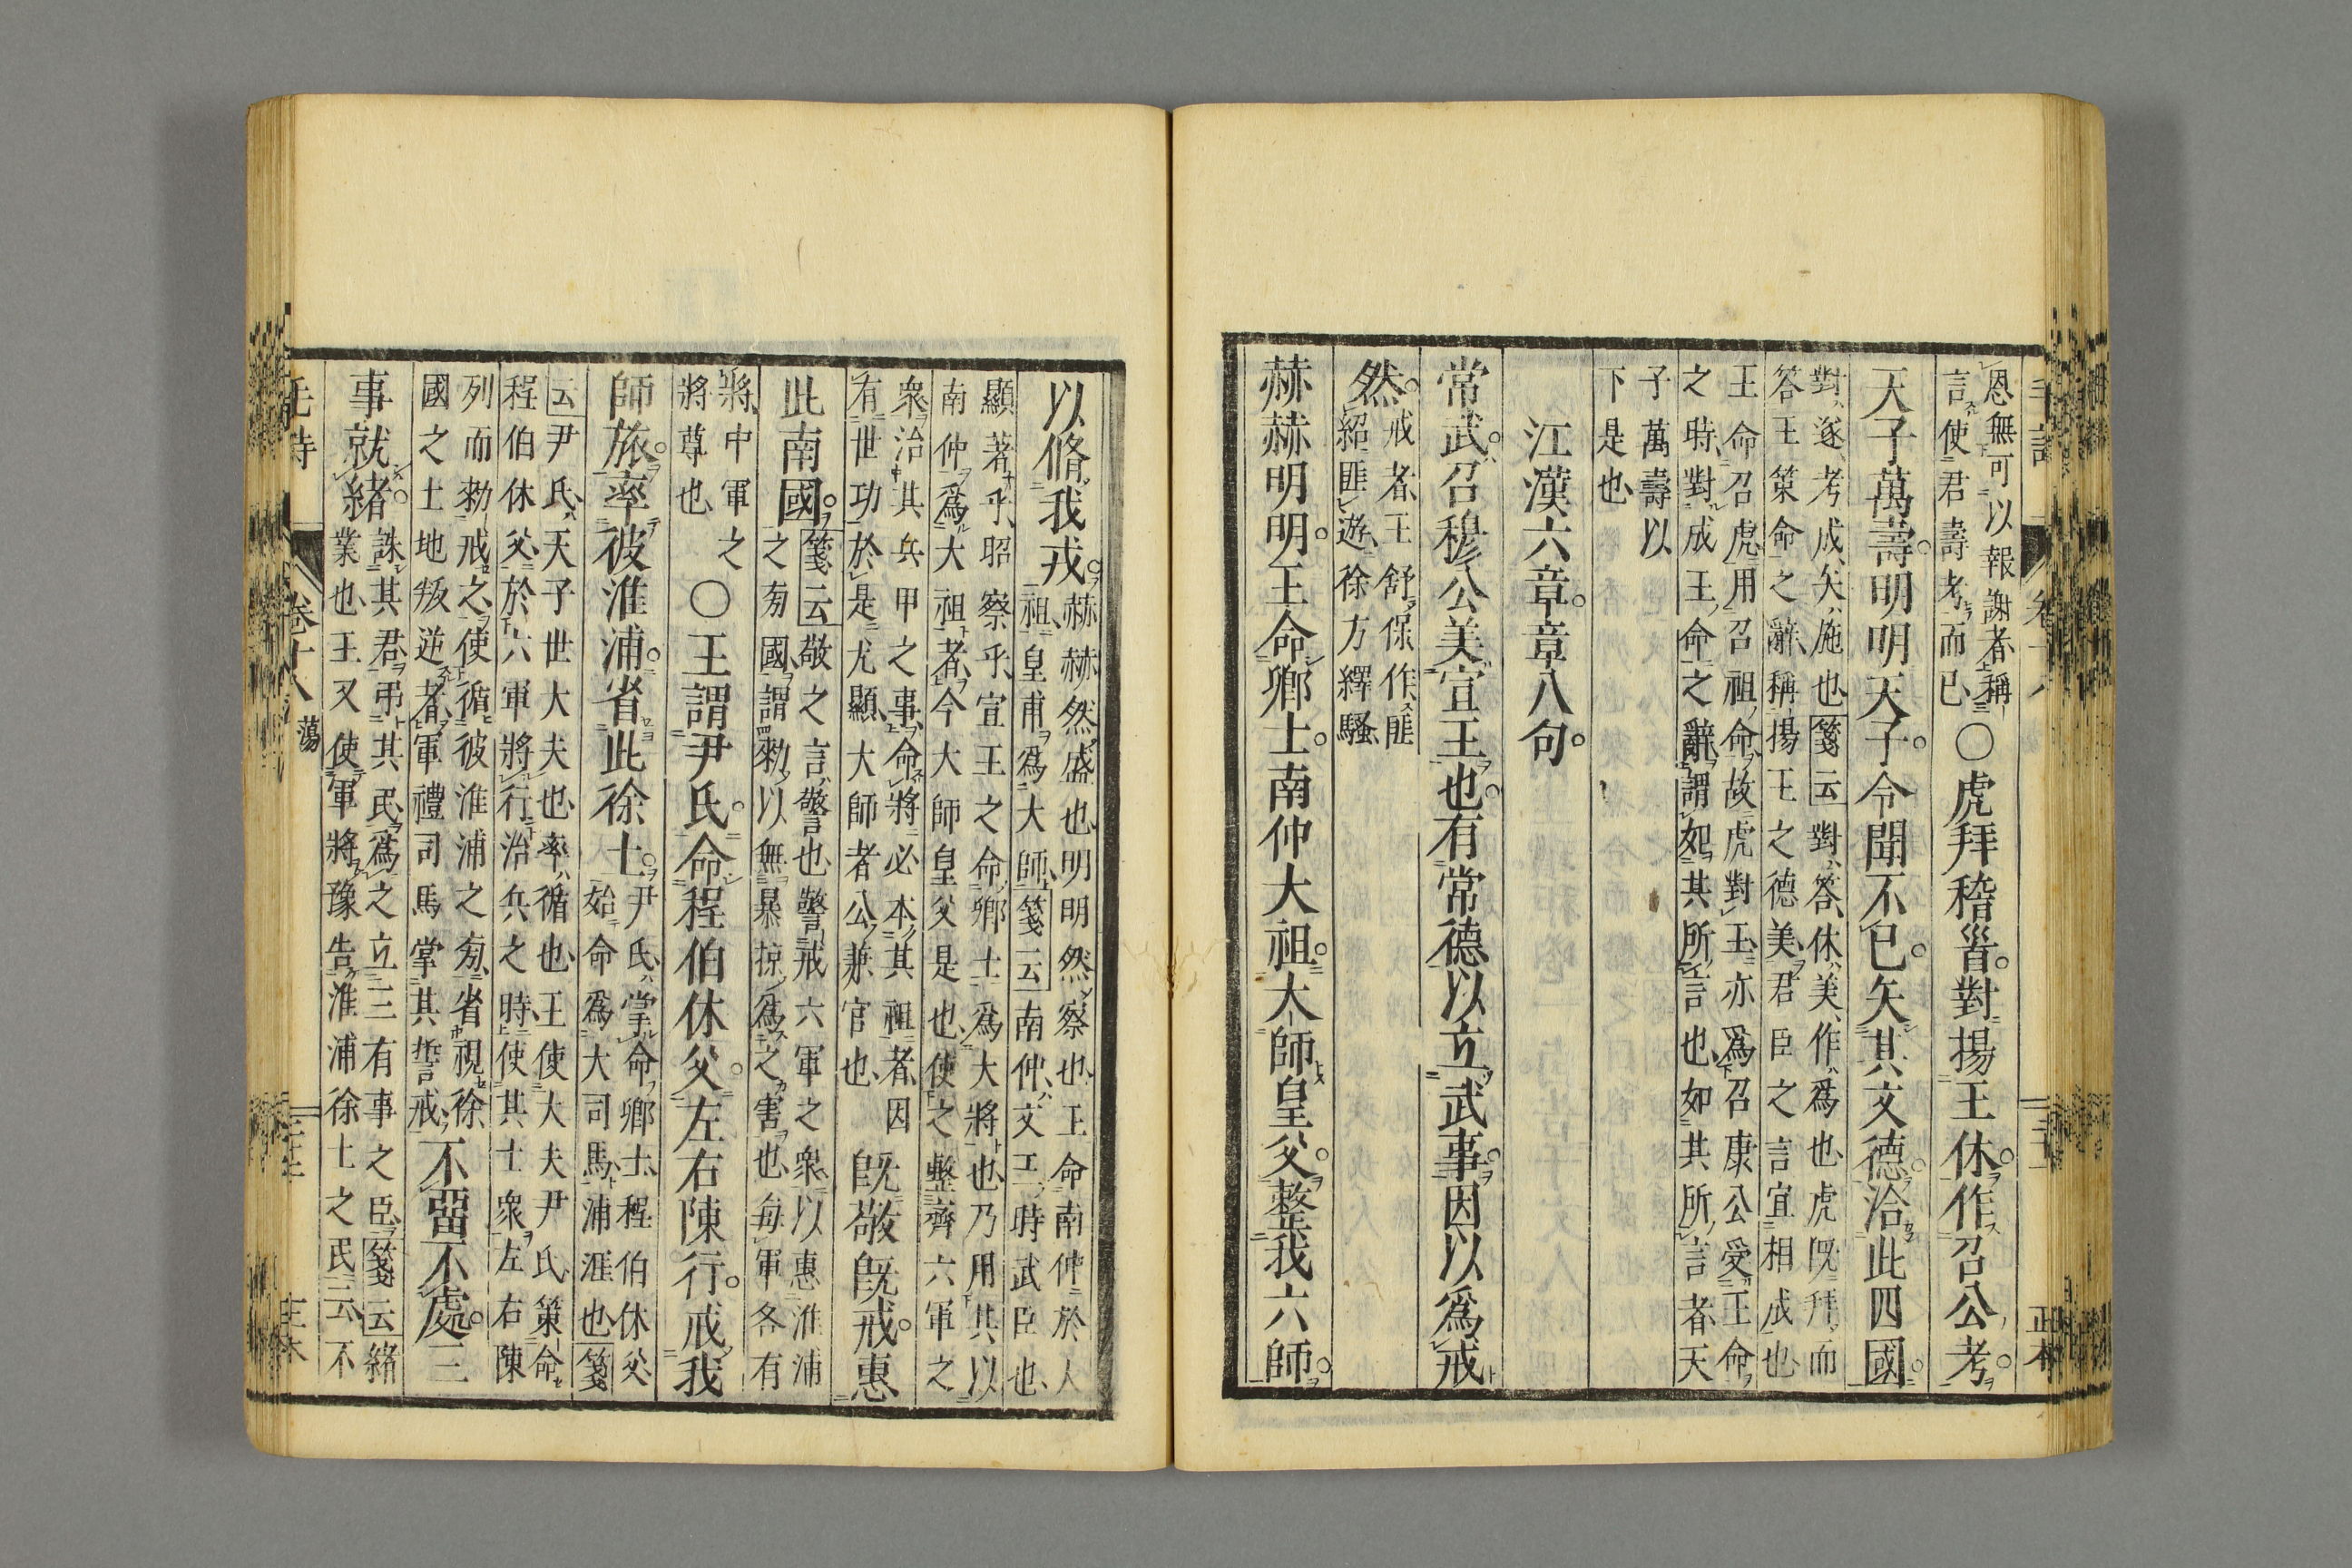 恩無可以報謝者稱
言使君壽考而已○虎拜稽首對揚王休作召公考
天子萬壽明明天子令聞不已矢其文德洽此四國
對遂考成矢施也箋云對答休美作爲也虎旣拜而
答王策命之辭稱揚王之德美君臣之言宜相成也
王命召虎用召祖命故虎對王亦爲召康公受王命
之時對成王命之辭謂如其所言也如其所言者天
子萬壽以
下是也
江漢六章章八句
常武召穆公美宣王也有常德以立武事因以爲戒
然戒者王舒保作匪
紹匪遊徐方繹騷
赫赫明明王命卿士南仲大祖大師皇父整我六師
以脩我戎赫赫然盛也明明然察也王命南仲於
祖皇甫爲大師箋云南仲文王時武臣也
顯著乎昭察乎宣王之命卿士爲大將也乃用其以
南仲爲大祖者今大師皇父是也使之整齊六軍之
衆治其兵甲之事命將必本其祖者因
有世功於是尤顯大師者公兼官也旣敬旣戒惠
此南國箋云敬之言警也警戒六軍之衆以惠淮浦
之匇國謂勑以無暴掠爲之害也每軍各有
將中軍之
將尊也○王謂尹氏命程伯休父左右陳行戒我
師旅率彼淮浦省此徐土尹氏掌命卿士程伯休父
始命爲大司馬浦涯也箋
云尹氏天子世大夫也率循也王使大夫尹氏策命
程伯休父於六軍將行治兵之時使其士衆左右陳
列而勑戒之使循彼淮浦之匇省視徐
國之土地叛逆者軍禮司馬掌其誓戒不留不處三
事就緒誅其君弔其民爲之立三有事之臣箋云緖
業也王又使軍將豫告淮浦徐土之民云不
毛詩
卷十八
蕩